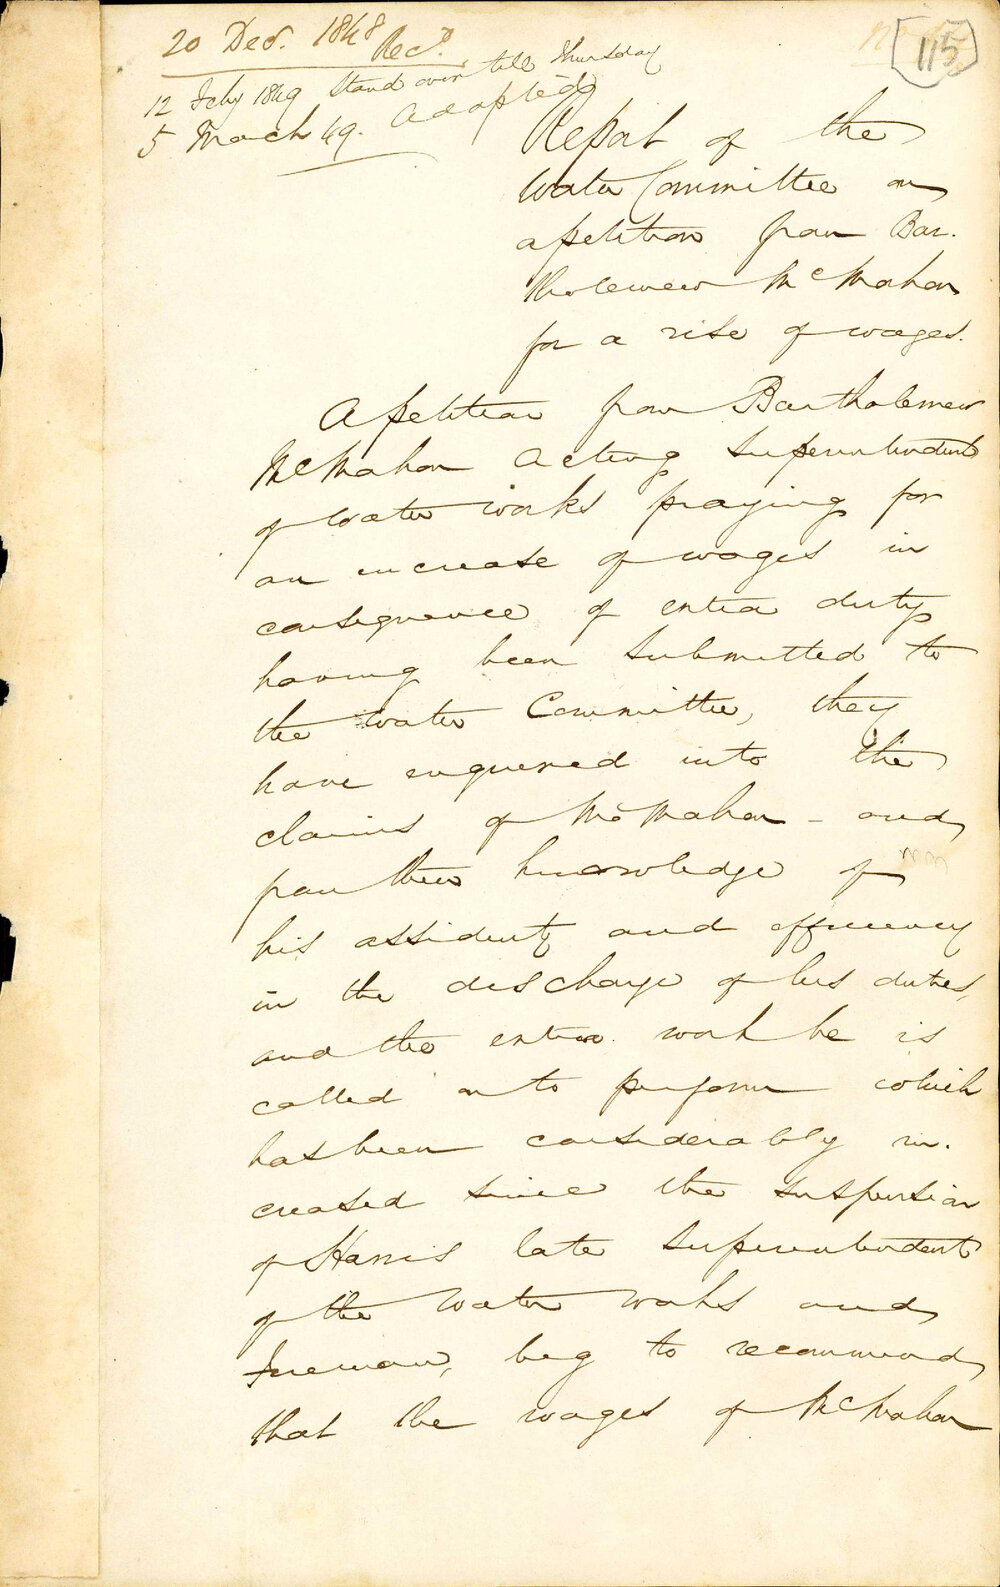 20 Decr. 1848 Recd.
12 Feby 1849 Stand over till Thursday
5 March 49. Adopted
115
Report of the
Water Committee on
a petition from Bar-
tholemew McMahon
for a rise of wages.
A petition from Bartholemew
McMahon Acting Superintendent
of Water works praying for
an increase of wages in
consequence of extra duty
having been submitted to
the Water Committee, they
have enquired into the
claims of McMahon - and
from their knowledge of
his assiduity and efficiency
in the discharge of his duties,
and the extra work he is
called on to perform which
has been considerably in-
creased since the suspension
of Harris late Superintendent
of the Water works and
Fireman, beg to recommend
that the wages of McMahon